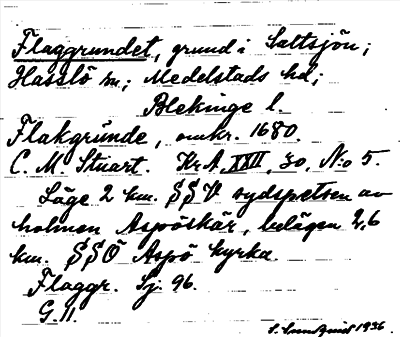 Flaggrundet, grund i Saltsjön;
Hasslö sn; Medelstads hd;
Blekinge l.
Flakgrunde, omkr. 1680.
C. M. Stuart. Kr A. XXII, 30, N:o 5.
Läge 2 km. SSV sydspetsen av
holmen Aspöskär, belägen 2,6
km. SSÖ Aspö kyrka.
Flaggr. Sj. 96.
G. 11.
S. Lundquist 1936.